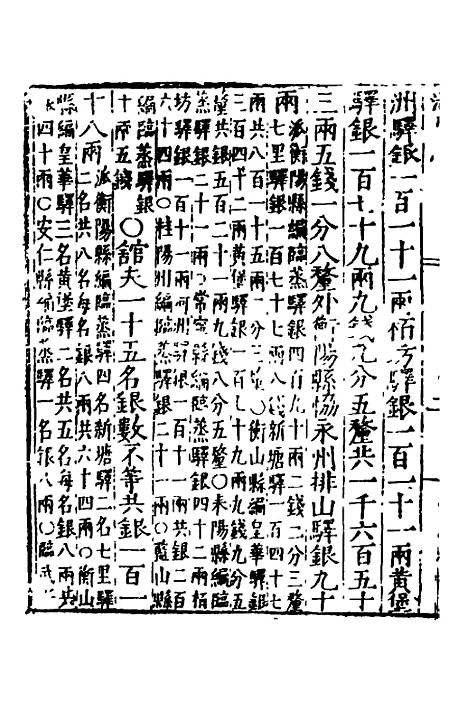 洲驛銀一百一十一兩栢坊驛銀一百一十一兩黃堡
驛銀一百七十九兩九錢九分五釐共一千六百五十
三兩五錢一分八釐外衡陽縣協永州排山驛銀九十
兩
派衡陽縣編臨蒸驛銀四百九十兩二錢二分三釐
七里驛銀一百七十七兩八錢新塘驛一百四十七
兩共八百一十五兩二分三釐〇衡山縣編皇華驛銀
三百四十二兩黃堡驛銀一百七十九兩九錢九分五
釐共銀五百二十一兩九錢八分五釐〇耒陽縣編臨
蒸驛銀二十一兩〇常寧縣編臨蒸驛銀四十二兩栢
坊驛銀一百一十一兩河洲驛銀一百一十一兩共銀二百
六十四兩〇桂陽州編臨蒸驛銀二十一兩〇藍山縣
編臨蒸驛銀
十兩五錢
〇舘夫一十五名銀數不等共銀一百一
十八兩
派衡陽縣編臨蒸驛四名新塘驛二名七里驛
二名共八名每名銀八兩共六十四兩〇衡山
縣編皇華驛三名黃堡驛二名共五名每名銀八兩共
銀四十兩〇安仁縣編臨蒸驛一名銀八兩〇臨武